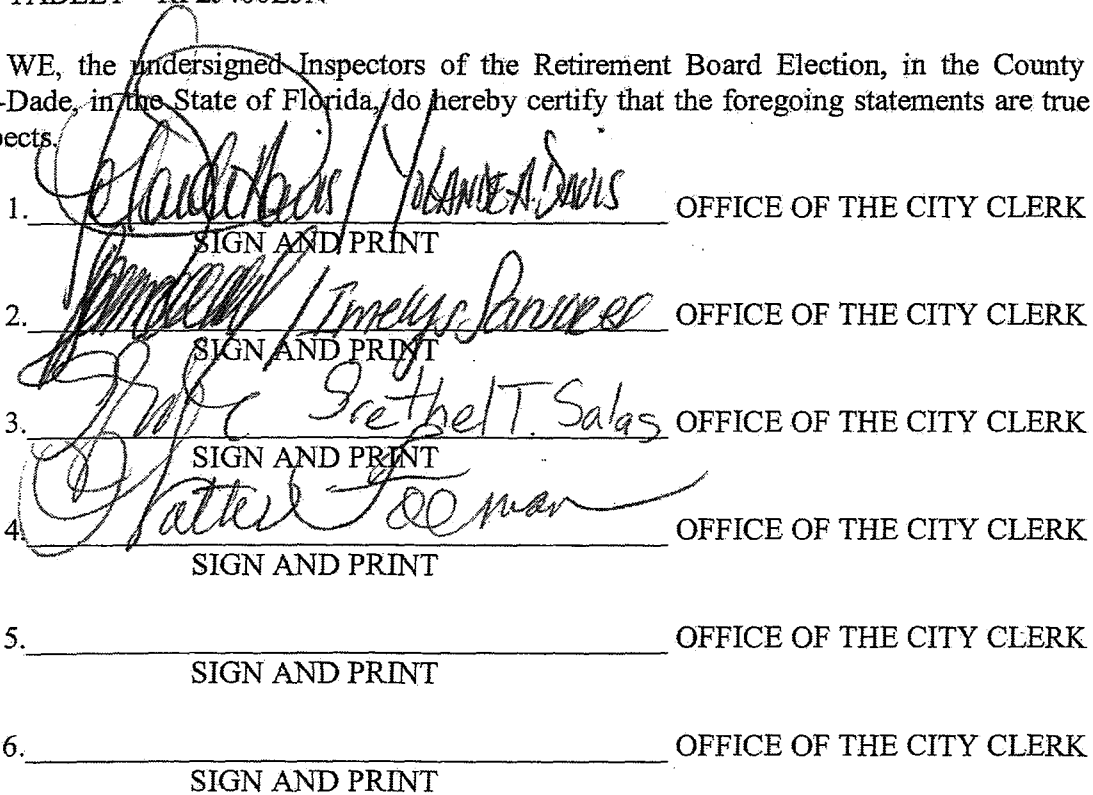 WE, the undersigned Inspectors of the Retirement Board Election, in the County
-Dade, in the State of Florida, do hereby certify that the foregoing statements are true
pects.
1. / YOLANDE A. DAVIS OFFICE OF THE CITY CLERK
SIGN AND PRINT
2. / Imelys OFFICE OF THE CITY CLERK
SIGN AND PRINT
3. Grethel T. Salas OFFICE OF THE CITY CLERK
SIGN AND PRINT
4. OFFICE OF THE CITY CLERK
SIGN AND PRINT
5. OFFICE OF THE CITY CLERK
SIGN AND PRINT
6. OFFICE OF THE CITY CLERK
SIGN AND PRINT